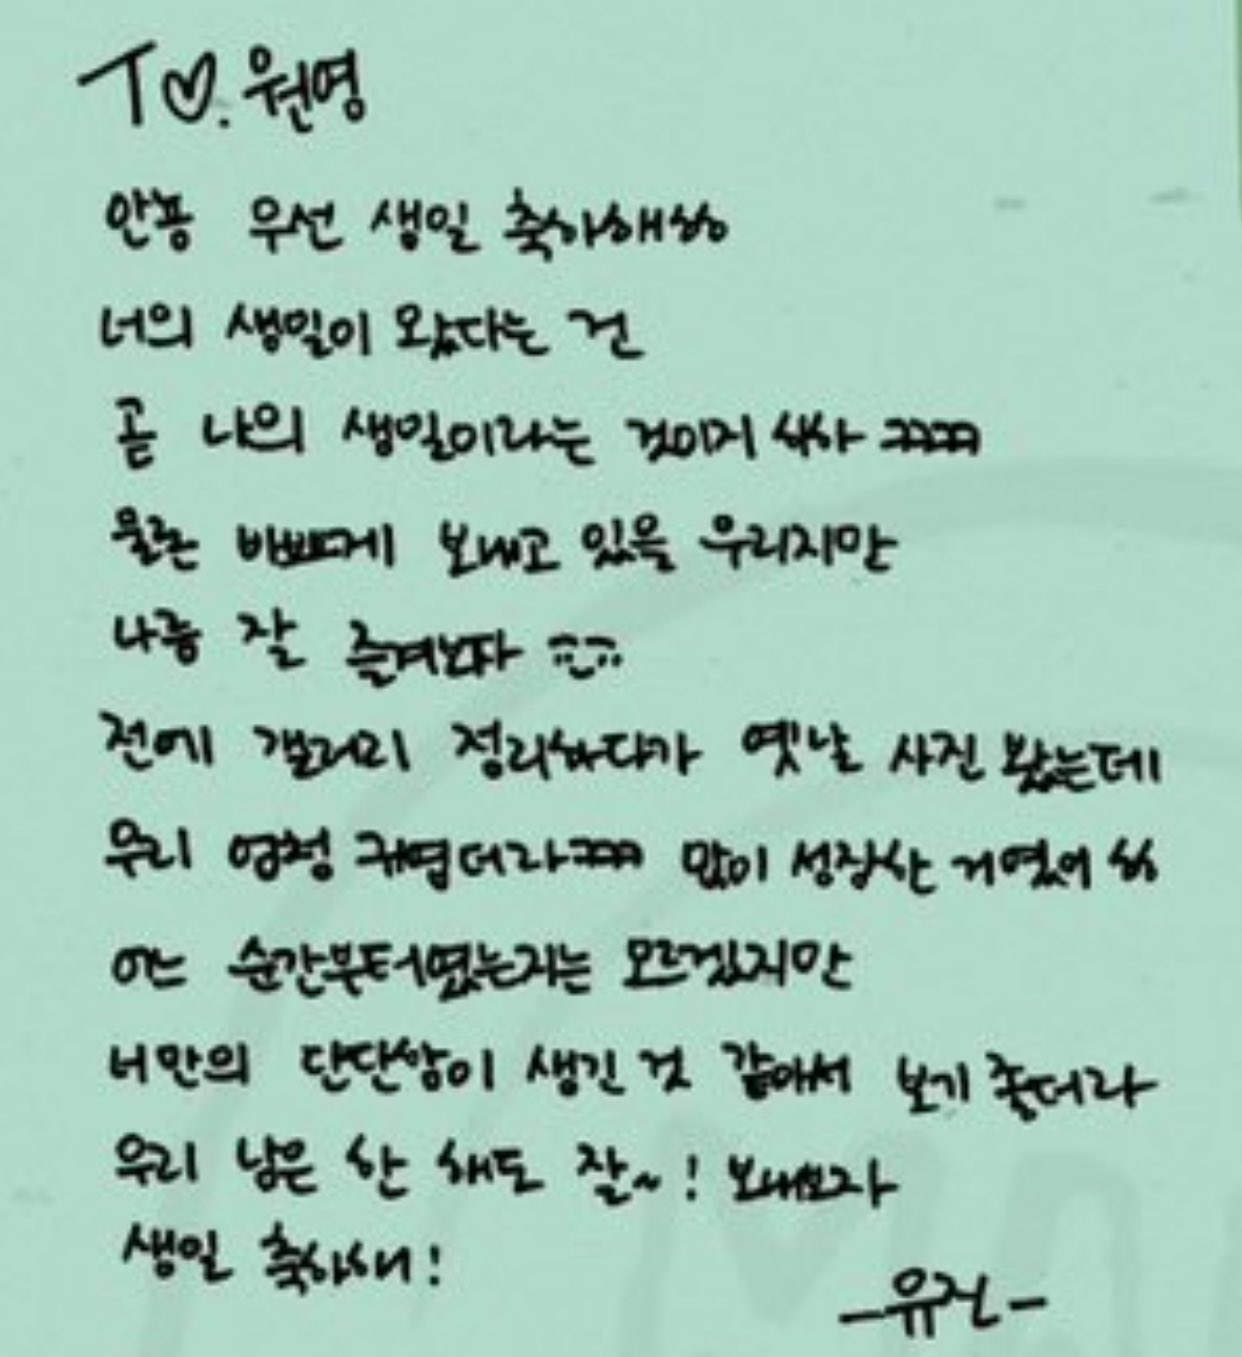 To. 원영
안뇽 우선 생일 축하해ㅎㅎ
너의 생일이 왔다는 건
곧 나의 생일이라는 것이거 ㅋㅋㅋㅋ
물론 바쁘게 보내고 있을 우리지만
나름 잘 즐겨보자
전에 갤러리 정리하다가 옛날 사진 봤는데
우리 엄청 귀엽더라ㅋㅋㅋ 많이 성장한 거였어 ㅎㅎ
어느 순간부터였는지는 모르겠지만
너만의 단단함이 생긴 것 같아서 보기 좋더라
우리 남은 한 해도 잘~! 보내보자
생일 축하해!
-유진-